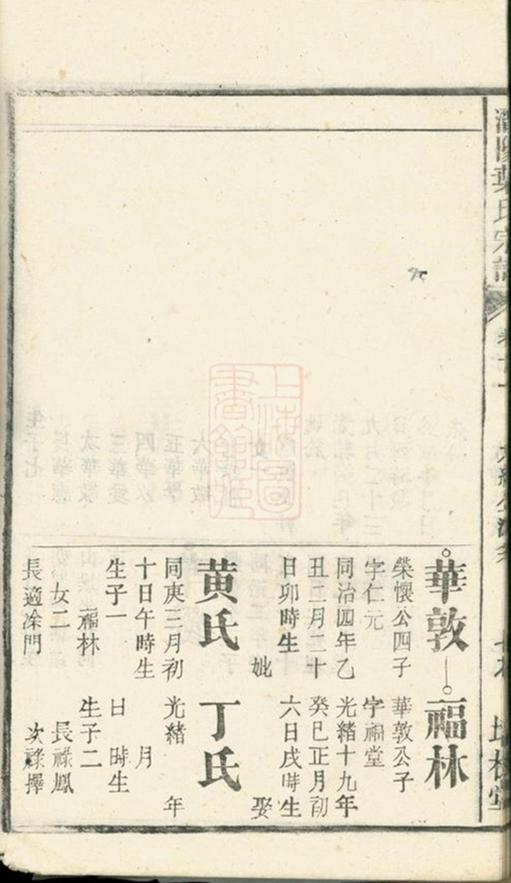 葉氏宗譜
華敦
榮懷公四子
字仁元
同治四年乙
丑二月二十
日卯時生
妣
黃氏
同庚三月初
十日午時生
生子一
福林
女一
長適涂門
福林
華敦公子
字福堂
光緒十九年
癸巳正月初
六日戌時生
娶
丁氏
光緒 年
月
日 時生
生子二
長祿鳳
次祿擇
上海圖書館藏